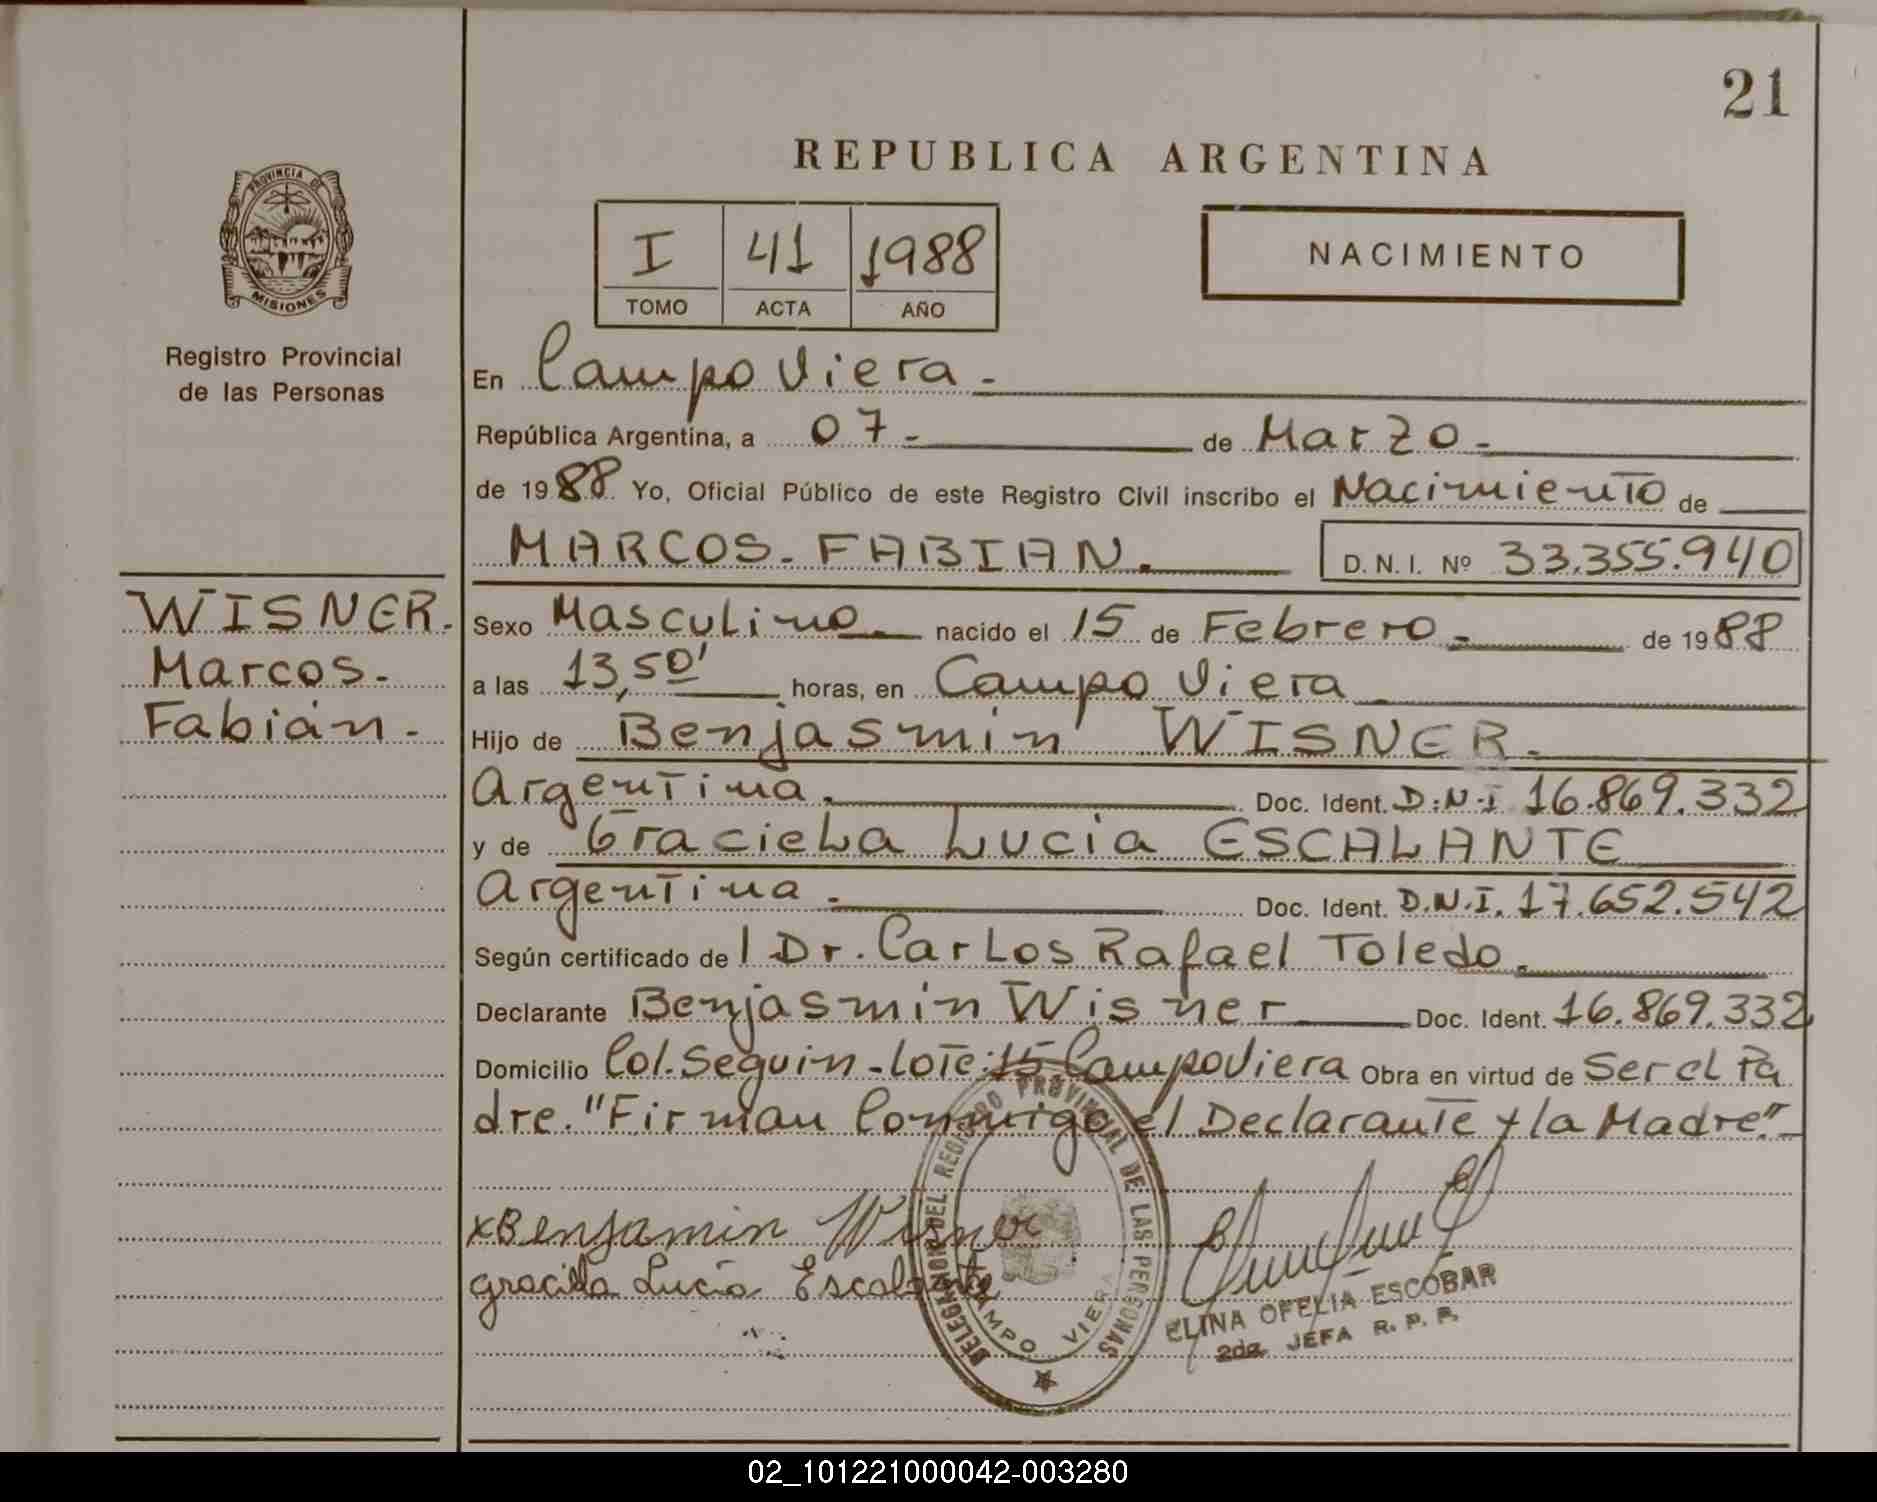 21
REPUBLICA ARGENTINA
PROVINCIA DE
MISIONES
Registro Provincial
de las Personas
I 41 1988
TOMO ACTA AÑO
NACIMIENTO
En Campo Viera.-
República Argentina, a 07.- de Marzo.-
de 1988 Yo, Oficial Público de este Registro Civil inscribo el Nacimiento de
MARCOS-FABIAN.- D. N. I. Nº 33.355.940
WISNER.
Marcos.-
Fabián.-
Sexo Masculino.- nacido el 15 de Febrero.- de 1988
a las 13,50' horas, en Campo Viera
Hijo de Benjasmín WISNER.-
Argentina.- Doc. Ident. D.N.I 16.869.332
y de Graciela Lucia ESCALANTE
Argentina.- Doc. Ident. D.N.I. 17.652.542
Según certificado del Dr. Carlos Rafael Toledo.-
Declarante Benjasmín Wisner Doc. Ident. 16.869.332
Domicilio Col. Seguin-Lote:15 Campo Viera Obra en virtud de Ser el Pa
dre. "Firman Conmigo el Declarante y la Madre".-
xBenjamin Wisner
graciela Lucía Escalante
DELEGACION DEL REGISTRO PROVINCIAL DE LAS PERSONAS
CAMPO VIERA
ELINA OFELIA ESCOBAR
2da. JEFA R. P. P.
02_101221000042-003280